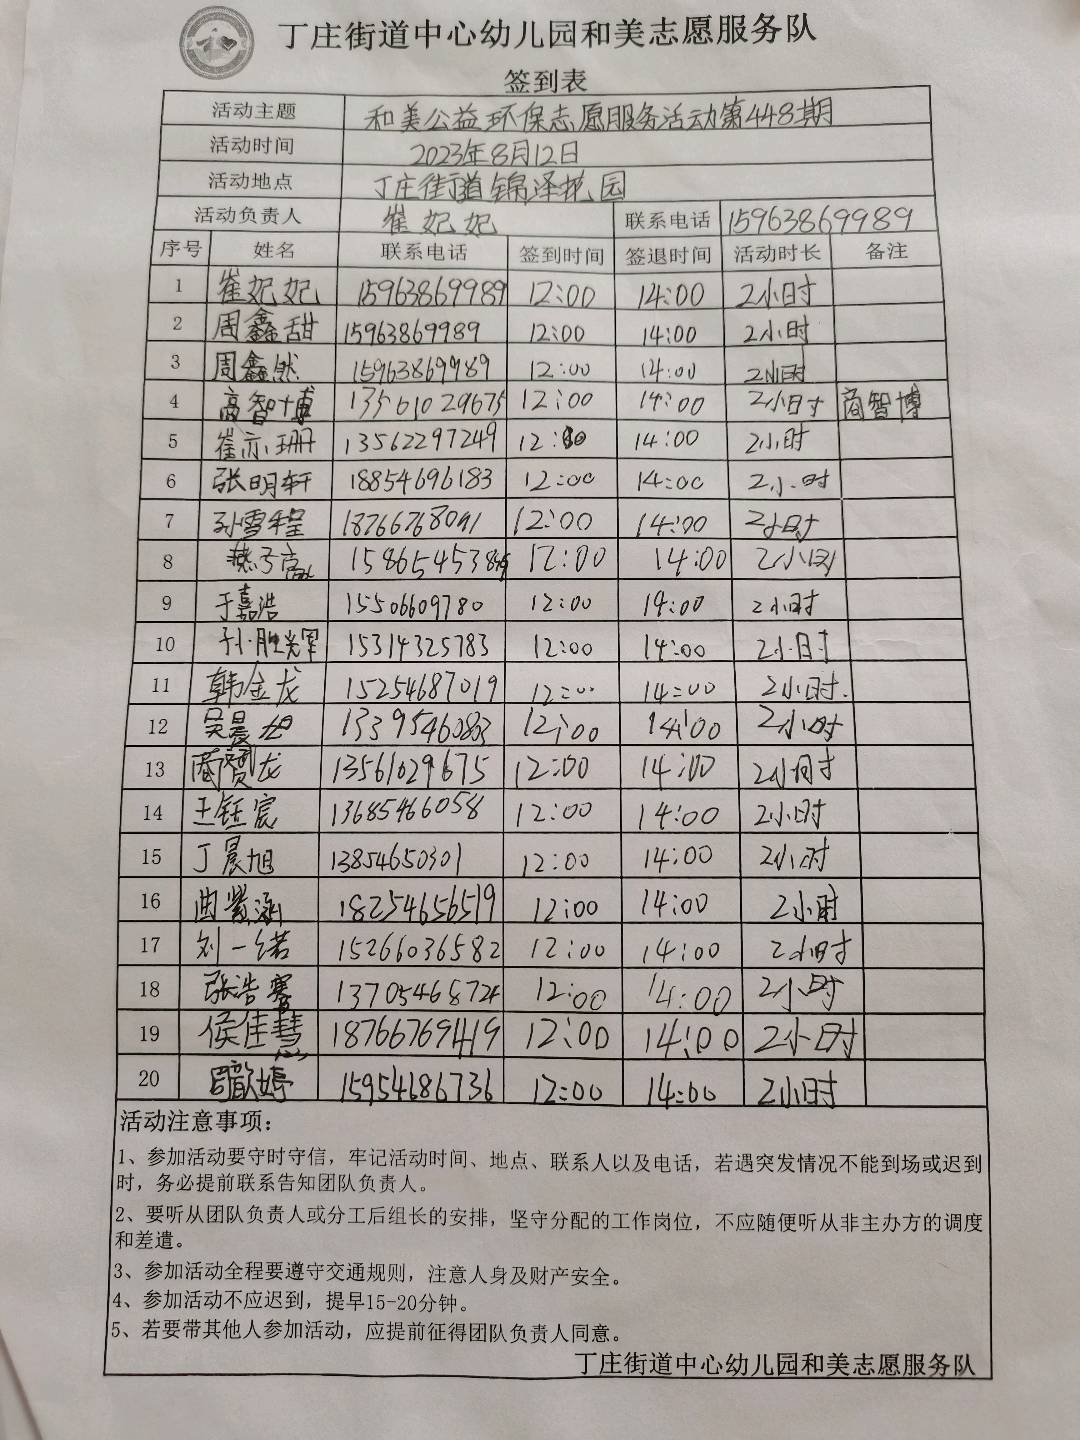 丁庄街道中心幼儿园和美志愿服务队
签到表
活动主题 和美公益环保志愿服务活动第448期
活动时间 2023年8月12日
活动地点 丁庄街道锦泽花园
活动负责人 崔妃妃 联系电话 15963869989
序号 姓名 联系电话 签到时间 签退时间 活动时长 备注
1 崔妃妃 15963869989 12:00 14:00 2小时
2 周鑫甜 15963869989 12:00 14:00 2小时
3 周鑫然 15963869989 12:00 14:00 2小时
4 商智博 13561029675 12:00 14:00 2小时 商智博
5 崔亦珊 13562297249 14:00 2小时
6 张明轩 18854696183 12:00 14:00 2小时
7 孙雪程 18766768091 12:00 14:00 2小时
8 燕子 12:00 14:00 2小时
9 于嘉浩 15506609780 12:00 14:00 2小时
10 15314325783 12:00 14:00 2小时
11 韩金龙 15254687019 12:00 14:00 2小时.
12 吴晨旭 13395460803 12:00 14:00 2小时
13 商贤龙 13561029675 12:00 14:00 2小时
14 王钰宸 13685466058 12:00 14:00 2小时
15 丁晨旭 13854650301 12:00 14:00 2小时
16 曲紫涵 18254656519 12:00 14:00 2小时
17 刘一诺 15266036582 12:00 14:00 2小时
18 张浩赛 13705468724 12:00 14:00 2小时
19 侯佳慧 18766769419 12:00 14:00 2小时
20 周歆婷 15954686736 12:00 14:00 2小时
活动注意事项：
1、参加活动要守时守信，牢记活动时间、地点、联系人以及电话，若遇突发情况不能到场或迟到
时，务必提前联系告知团队负责人。
2、要听从团队负责人或分工后组长的安排，坚守分配的工作岗位，不应随便听从非主办方的调度
和差遣。
3、参加活动全程要遵守交通规则，注意人身及财产安全。
4、参加活动不应迟到，提早15-20分钟。
5、若要带其他人参加活动，应提前征得团队负责人同意。
丁庄街道中心幼儿园和美志愿服务队